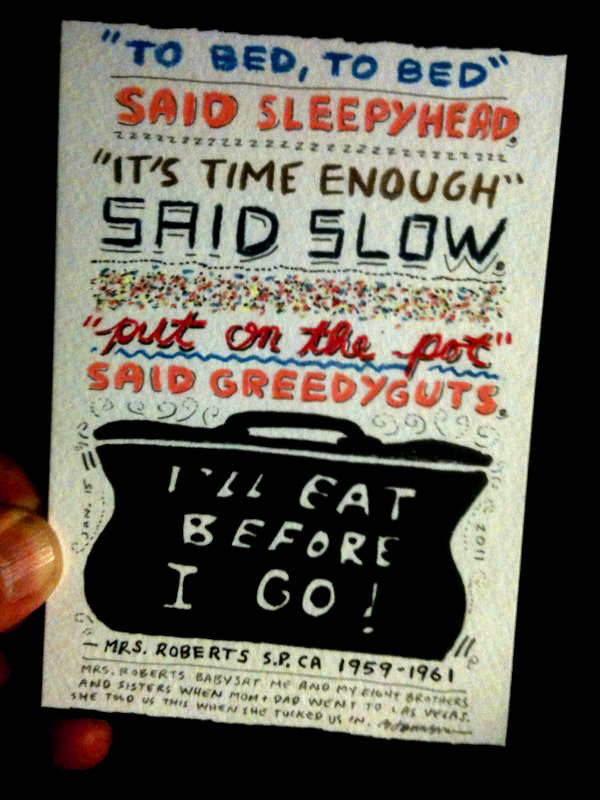 "TO BED, TO BED"
SAID SLEEPYHEAD.
"IT'S TIME ENOUGH"
SAID SLOW.
"put on the pot"
SAID GREEDYGUTS.
I'LL EAT
BEFORE
I GO!
JAN. 15
2011
— MRS. ROBERTS S.P. CA 1959-1961
MRS. ROBERTS BABYSAT ME AND MY EIGHT BROTHERS
AND SISTERS WHEN MOM + DAD WENT TO LAS VEGAS.
SHE TOLD US THIS WHEN SHE TUCKED US IN.